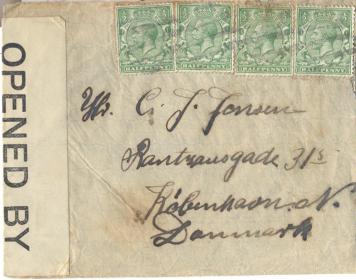 HALFPENNY HALFPENNY HALFPENNY HALFPENNY
OPENED BY
Mr. C. J. Jensen
Rantzausgade 31s
København. N.
Danmark